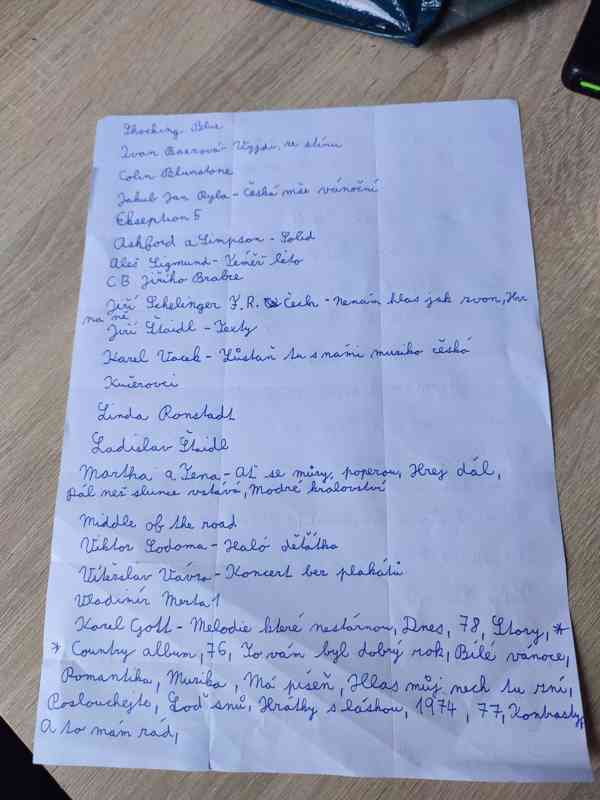 Shocking Blue
Ivan Baxrová - Vyjdi ze stínu
Colin Blunstone
Jakub Jan Ryba - Česká mše vánoční
Ekseption 5
Ashford a Simpson - Solid
Aleš Sigmund - Téměř léto
CB Jiřího Brabce
Jiří Schelinger F.R. Čech - Nemám hlas jak zvon, Hr
na ně
Jiří Štaidl - Texty
Karel Vacek - Zůstaň tu s námi muziko česká
Kučerovci
Linda Ronstadt
Ladislav Štaidl
Martha a Tena - Ať se můry, poperou, Hrej dál,
Dál než slunce vstává, Modré království
Middle of the road
Viktor Sodoma - Haló děťátka
Vítězslav Vávra - Koncert bez plakátů
Vladimír Merta 1
Karel Gott - Melodie které nestárnou, Dnes, 78, Story, *
* Country album, 76, To vám byl dobrý rok, Bílé vánoce,
Romantika, Muzika, Má píseň, Hlas můj nech tu zní,
Poslouchejte, Loď snů, Hrátky s láskou, 1974, 77, Kontrasty,
A to mám rád,